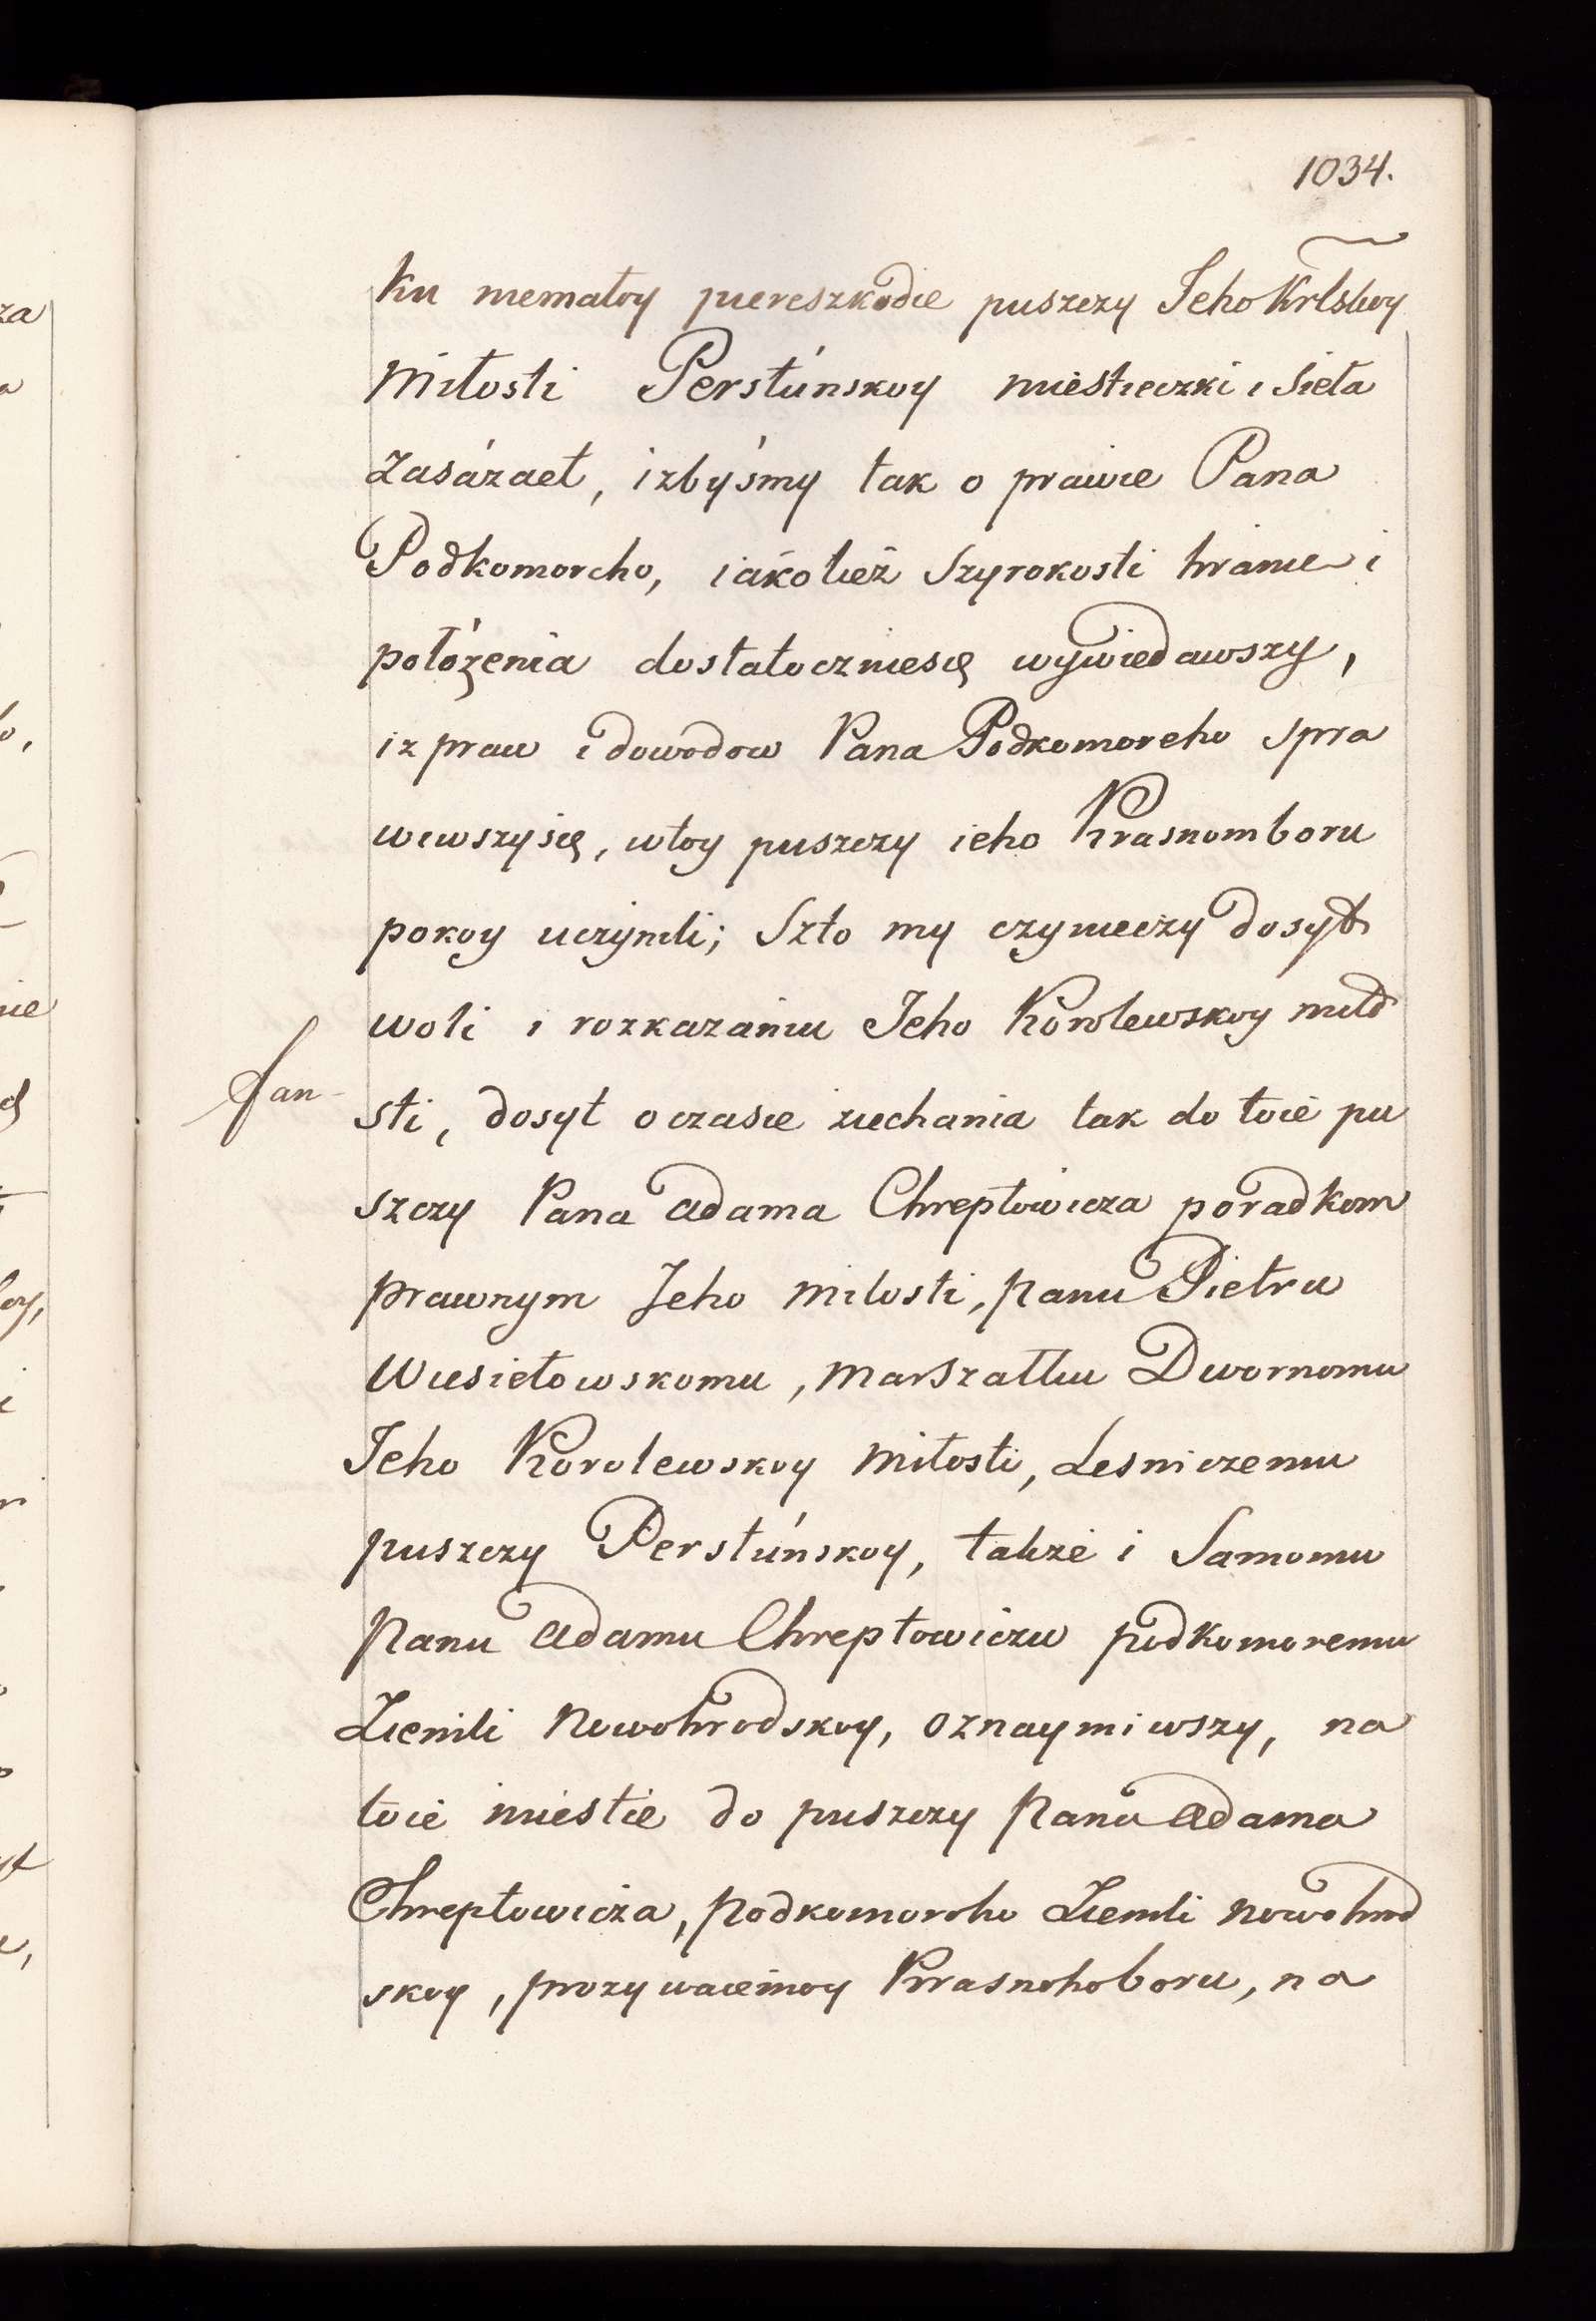 1034.
Ku niemałoy piereszkodie puszczy Jeho Krlskoy
Miłosti Perstúnskoy miestieczki i sieła
zasázaet, izbyśmy tak o prawie Pana
Podkomoreho, iákotież szyrokosti hranie i
położenia dostatoczniesię wywiedawszy,
iz praw i dowodow Pana Podkomoreho spra
wiwszysię, wtoy puszczy ieho Krasnomboru
pokoy uczynili; szto my czynieczy dosyt
woli i rozkazaniu Jeho Korolewskoy miło
sti, dosyt o czasie ziechania tak do toie pu
szczy Pana Adama Chreptowicza poradkom
prawnym Jeho milosti, Panu Pietru
Wiesiełowskomu, Marszałku Dwornomu
Jeho Korolewskoy Miłosti, Lesniczemu
puszczy Perstúnskoy, także i samomu
Panu Adamu Chreptowiczu podkomoremu
Ziemli Nowohrodskoy, oznaymiwszy, na
toie miestie do puszczy Pana Adama
Chreptowicza, Podkomoroho Ziemli Nowohrod
skoy, prozywaiemoy Krasnohoboru, na